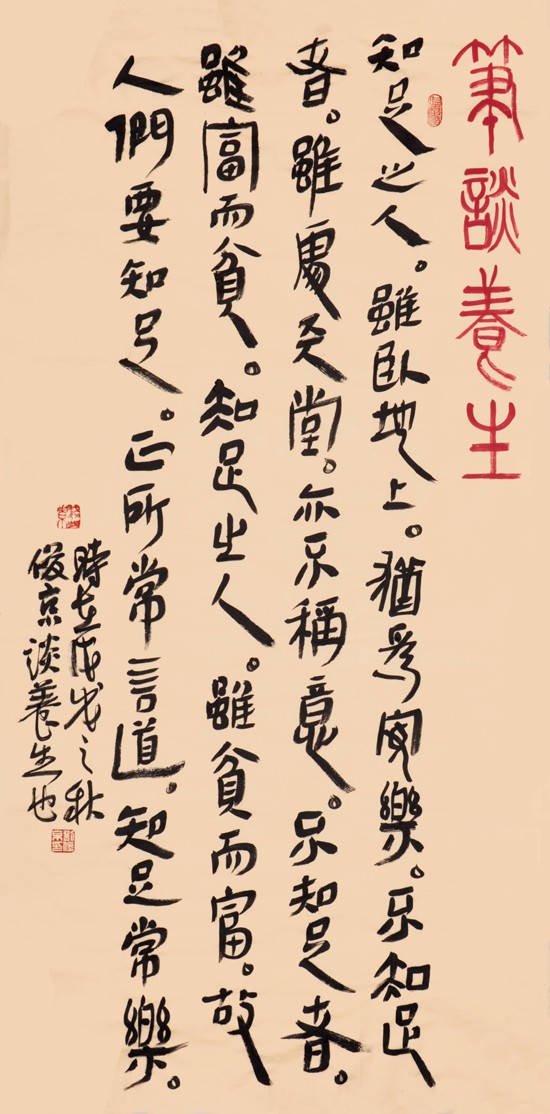 筆談養生
知足之人。雖臥地上。猶爲安樂。不知足
者。雖處天堂。亦不稱意。不知足者。
雖富而貧。知足之人。雖貧而富。故
人們要知足。正所常言道。知足常樂。
時在戊戌之秋
俊京谈養生也